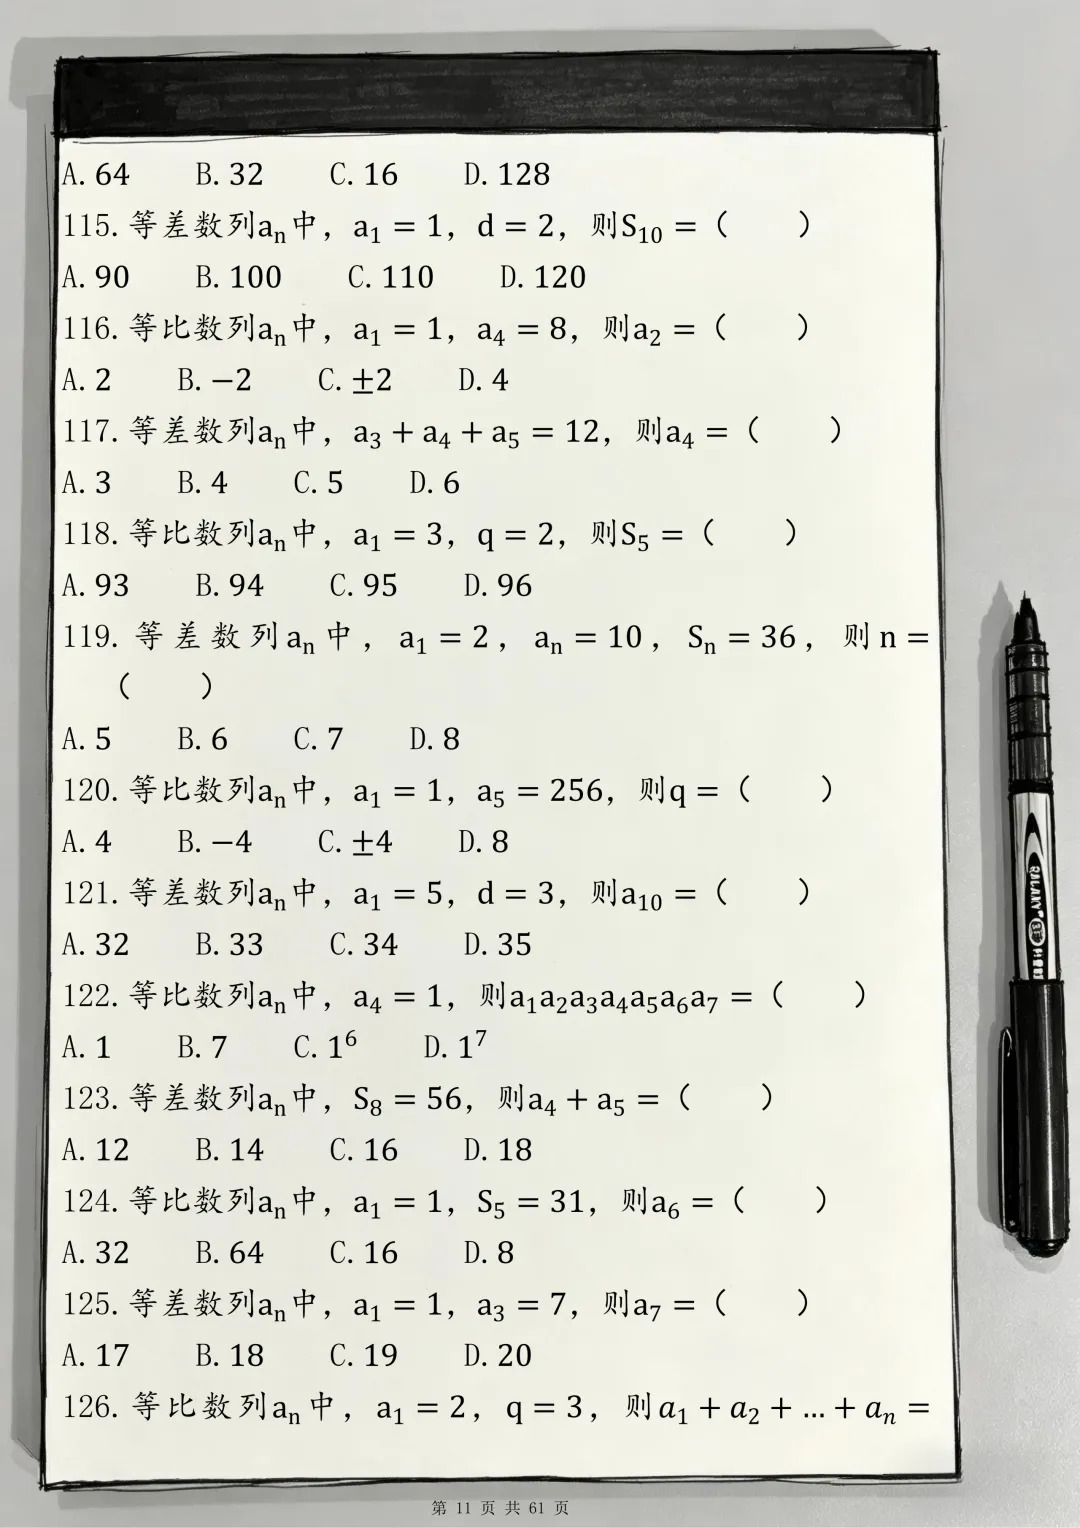 A. 64 B. 32 C. 16 D. 128
115. 等差数列aₙ中，a₁ = 1，d = 2，则S₁₀ =（ ）
A. 90 B. 100 C. 110 D. 120
116. 等比数列aₙ中，a₁ = 1，a₄ = 8，则a₂ =（ ）
A. 2 B. −2 C. ±2 D. 4
117. 等差数列aₙ中，a₃ + a₄ + a₅ = 12，则a₄ =（ ）
A. 3 B. 4 C. 5 D. 6
118. 等比数列aₙ中，a₁ = 3，q = 2，则S₅ =（ ）
A. 93 B. 94 C. 95 D. 96
119. 等差数列aₙ中，a₁ = 2，aₙ = 10，Sₙ = 36，则n =
（ ）
A. 5 B. 6 C. 7 D. 8
120. 等比数列aₙ中，a₁ = 1，a₅ = 256，则q =（ ）
A. 4 B. −4 C. ±4 D. 8
121. 等差数列aₙ中，a₁ = 5，d = 3，则a₁₀ =（ ）
A. 32 B. 33 C. 34 D. 35
122. 等比数列aₙ中，a₄ = 1，则a₁a₂a₃a₄a₅a₆a₇ =（ ）
A. 1 B. 7 C. 1⁶ D. 1⁷
123. 等差数列aₙ中，S₈ = 56，则a₄ + a₅ =（ ）
A. 12 B. 14 C. 16 D. 18
124. 等比数列aₙ中，a₁ = 1，S₅ = 31，则a₆ =（ ）
A. 32 B. 64 C. 16 D. 8
125. 等差数列aₙ中，a₁ = 1，a₃ = 7，则a₇ =（ ）
A. 17 B. 18 C. 19 D. 20
126. 等比数列aₙ中，a₁ = 2，q = 3，则a₁ + a₂ + … + aₙ =
第 11 页 共 61 页